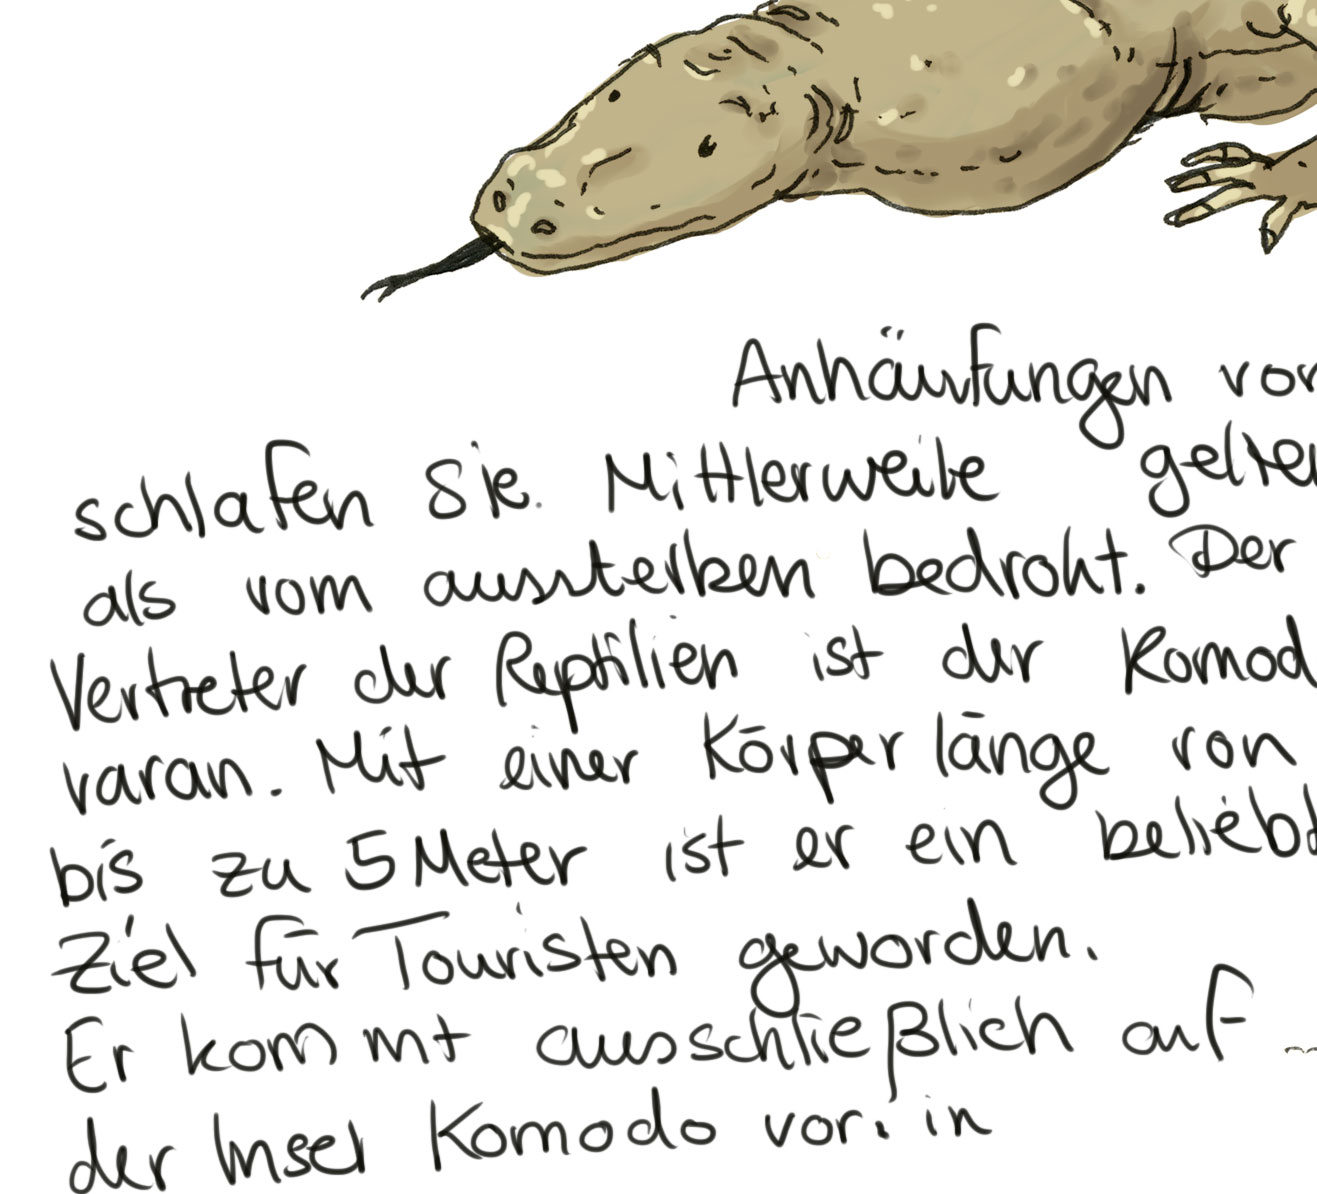 Anhäufungen von
schlafen Sie. Mittlerweile gelten
als vom aussterben bedroht. Der
Vertreter der Reptilien ist der Komod
varan. Mit einer Körperlänge von
bis zu 5 Meter ist er ein beliebt
Ziel für Touristen geworden.
Er kommt ausschließlich auf
der Insel Komodo vor. in